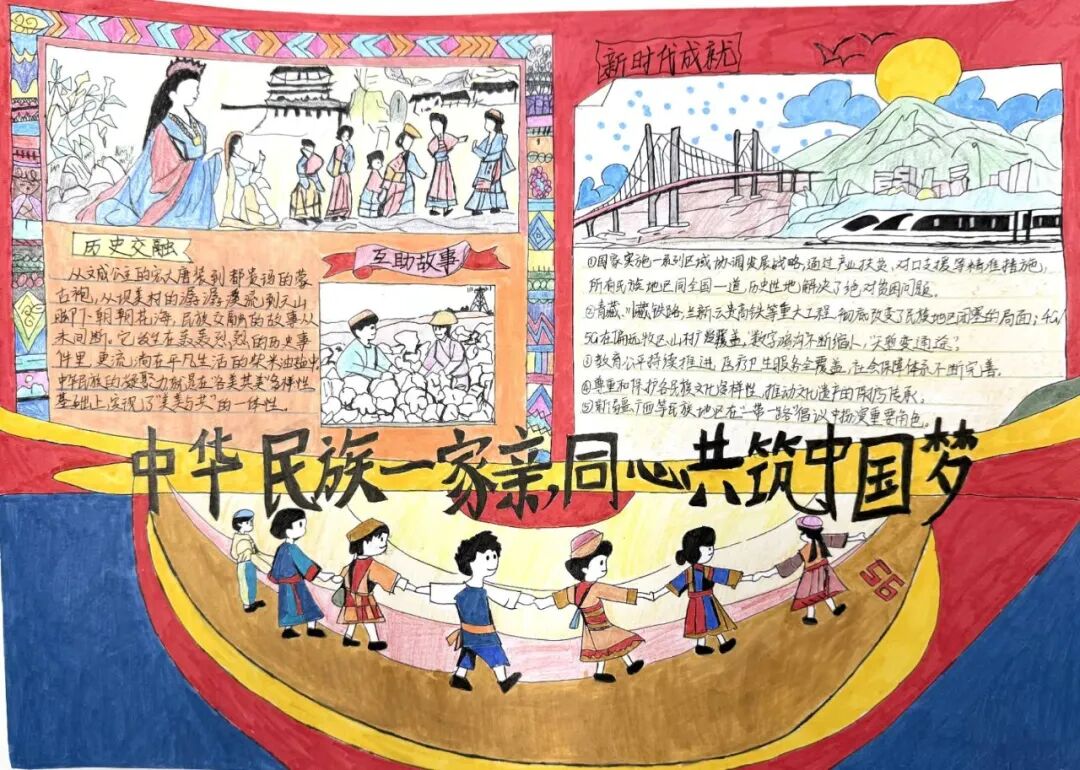 历史交融
从文成公主的宏大唐装到都贵玛的蒙
古袍，从坝美村的潺潺溪流到天山
脚下朝朝花海，民族交融的故事从
未间断。它发生在轰轰烈烈的历史事
件里，更流淌在平凡生活的柴米油盐中，
中华民族的凝聚力就是在各美其美多样性
基础上，实现了"美美与共"的一体性。
互助故事
新时代成就
①国家实施一系列区域协调发展战略，通过产业扶贫，对口支援等精准措施，
所有民族地区同全国一道，历史性地解决了绝对贫困问题。
②青藏、川藏铁路，兰新、云贵高铁等重大工程，彻底改变了民族地区闭塞的局面；4G/
5G在偏远牧区山村广泛覆盖，数字鸿沟不断缩小，天堑变通途？
③教育公平持续推进，医疗卫生服务全覆盖，社会保障体系不断完善。
④尊重和保护各民族文化多样性，推动文化遗产的保护传承。
⑤新疆、广西等民族地区在"一带一路"倡议中扮演重要角色。
中华民族一家亲，同心共筑中国梦
56